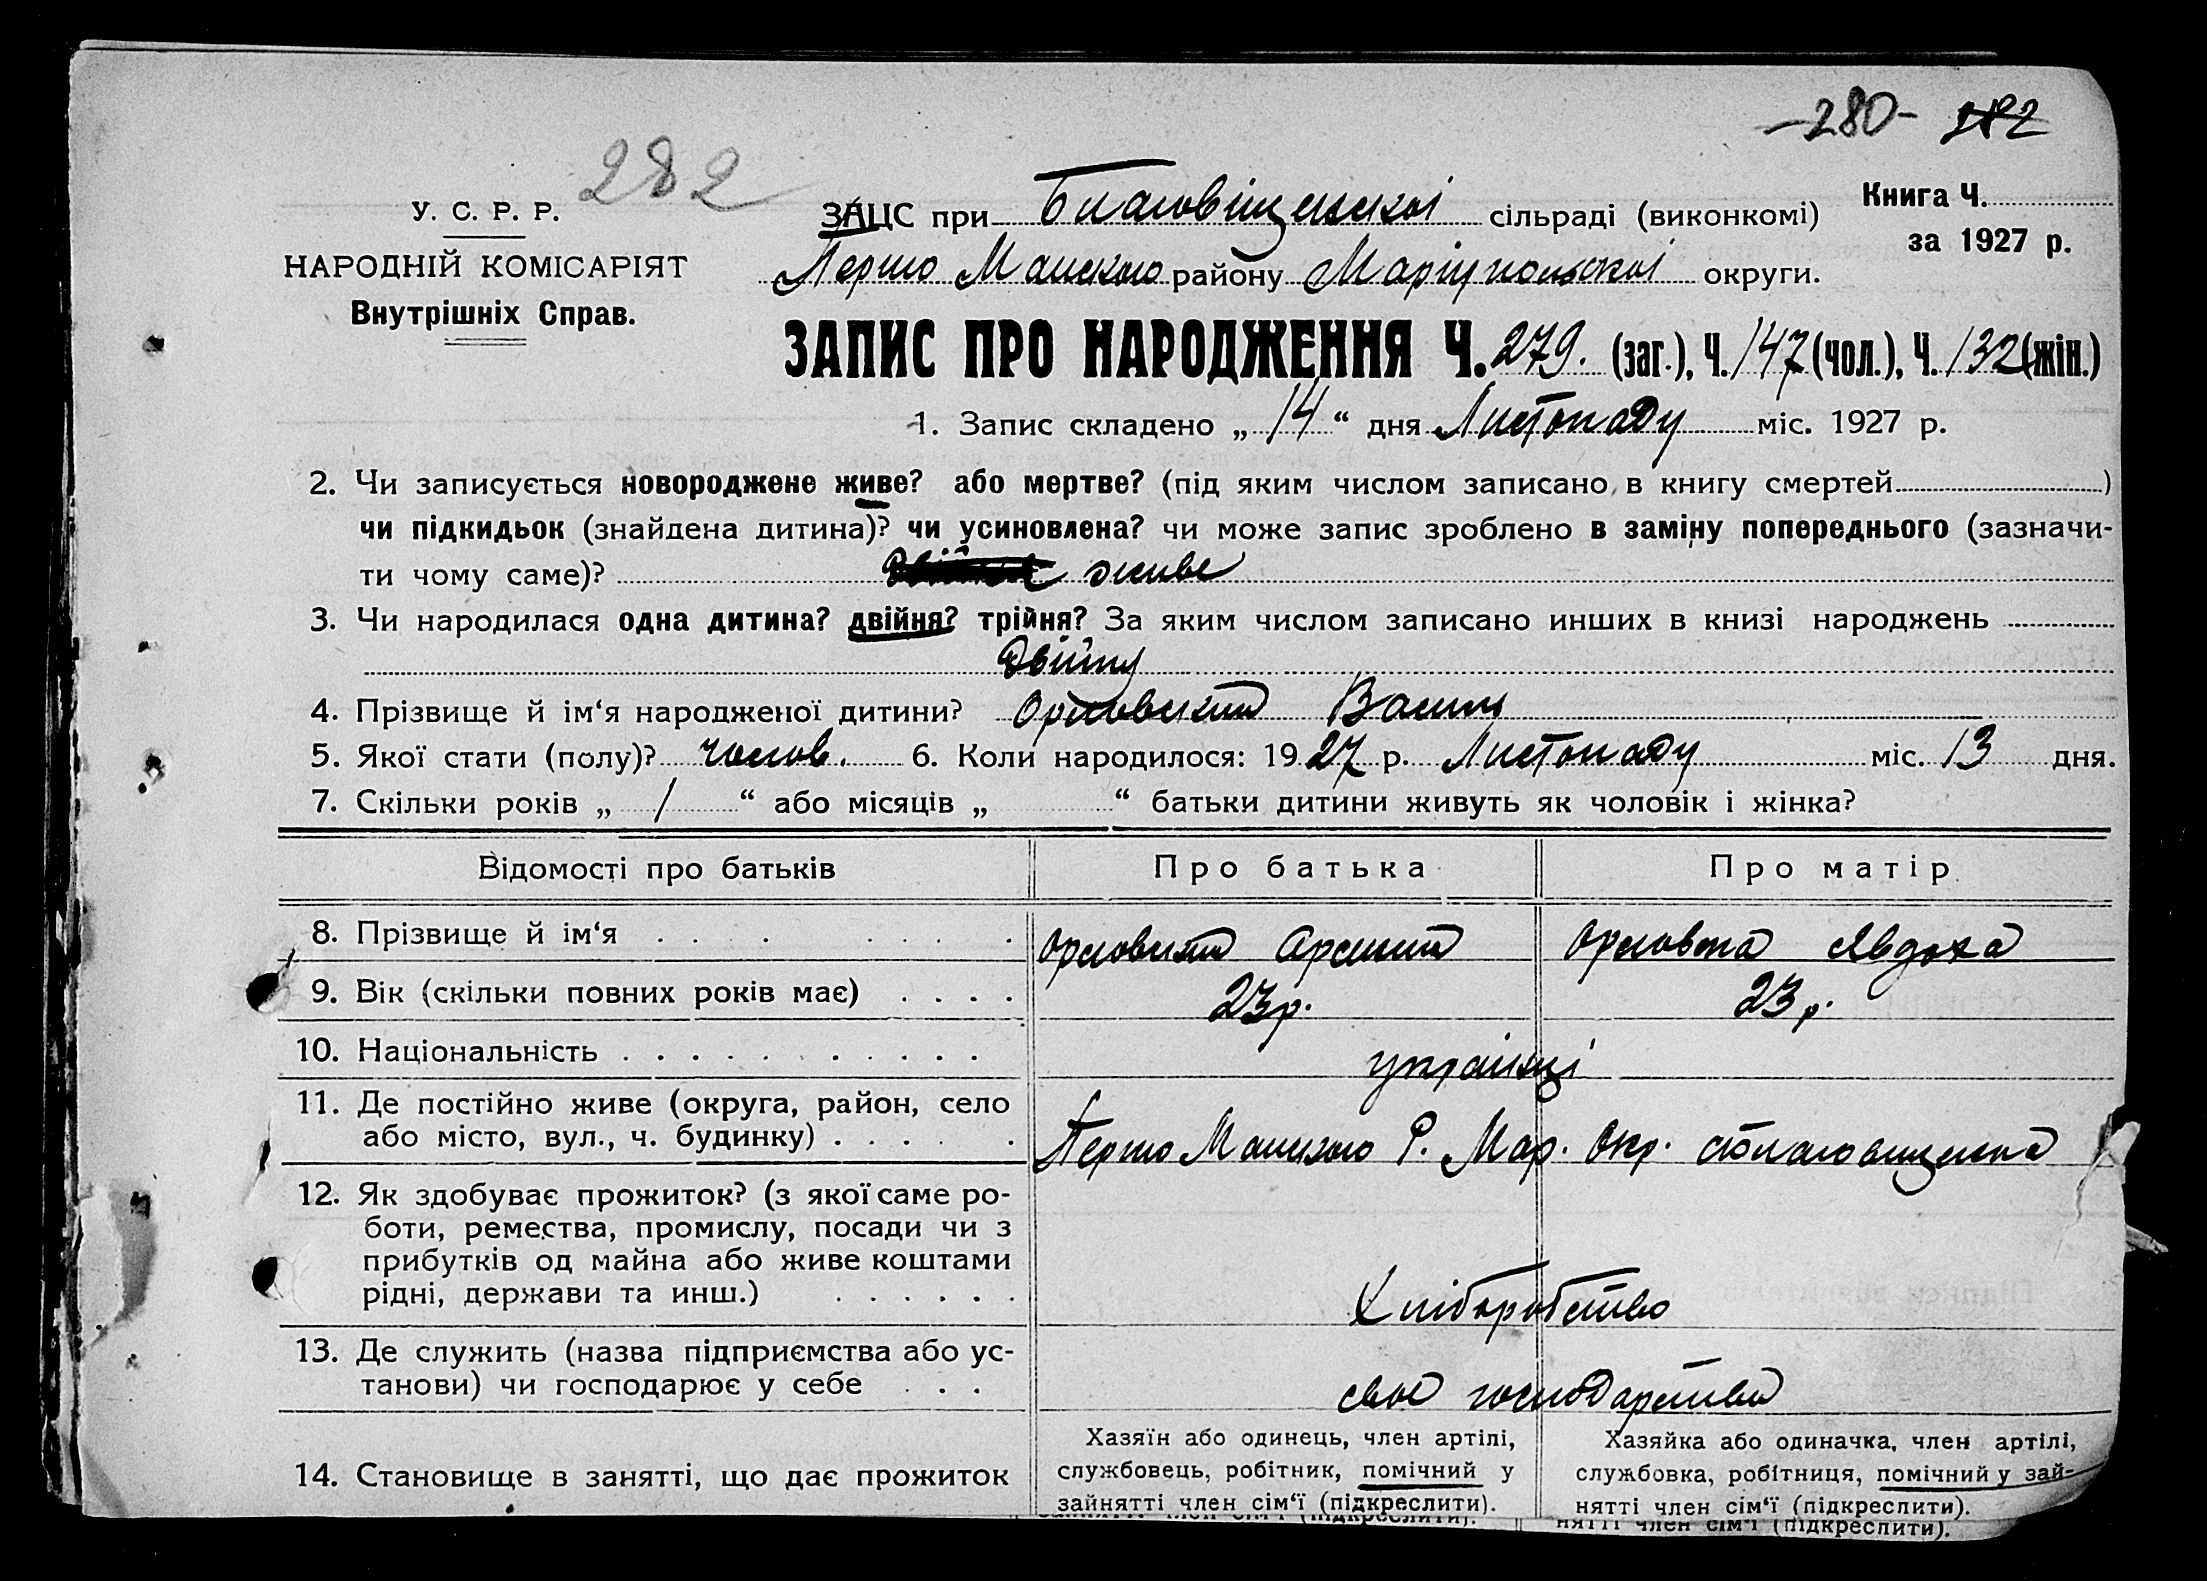 -280- 282
282
У. С. Р. Р.
НАРОДНІЙ КОМІСАРІЯТ
Внутрішніх Справ.
ЗАЦС при Благовіщенскої сільраді (виконкомі)
Книга Ч.
за 1927 р.
Першо Манского району Маріупольскої округи.
ЗАПИС ПРО НАРОДЖЕННЯ Ч. 279. (заг.), Ч. 147 (чол.), Ч. 132 (жін.)
1. Запис складено „ 14 “ дня Листопаду міс. 1927 р.
2. Чи записується новороджене живе? або мертве? (під яким числом записано в книгу смертей )
чи підкидьок (знайдена дитина)? чи усиновлена? чи може запис зроблено в заміну попереднього (зазначи-
ти чому саме)? живе
3. Чи народилася одна дитина? двійня? трійня? За яким числом записано инших в книзі народжень
Двійня
4. Прізвище й ім‘я народженої дитини? Орловский Василь
5. Якої стати (полу)? чолов. 6. Коли народилося: 1927 р. Листопаду міс. 13 дня.
7. Скільки років „ 1 “ або місяців „ “ батьки дитини живуть як чоловік і жінка?
Відомості про батьків Про батька Про матір
8. Прізвище й ім‘я . . . . . . . Орловский Арсений Орловска Явдоха
9. Вік (скільки повних років має) . . . . 23 р. 23 р.
10. Національність . . . . . . . . . . . українці
11. Де постійно живе (округа, район, село
або місто, вул., ч. будинку) . . . . . Першо Манского Р. Мар. Окр. с Благовищенка
12. Як здобуває прожиток? (з якої саме ро-
боти, ремества, промислу, посади чи з
прибутків од майна або живе коштами
рідні, держави та инш.) . . . . . . Хліборобство
13. Де служить (назва підприємства або ус-
танови) чи господарює у себе . . . своє господарство
14. Становище в занятті, що дає прожиток
Хазяїн або одинець, член артілі,
службовець, робітник, помічний у
зайнятті член сім‘ї (підкреслити).
Хазяйка або одиначка, член артілі,
службовка, робітниця, помічний у зай-
нятті член сім‘ї (підкреслити).